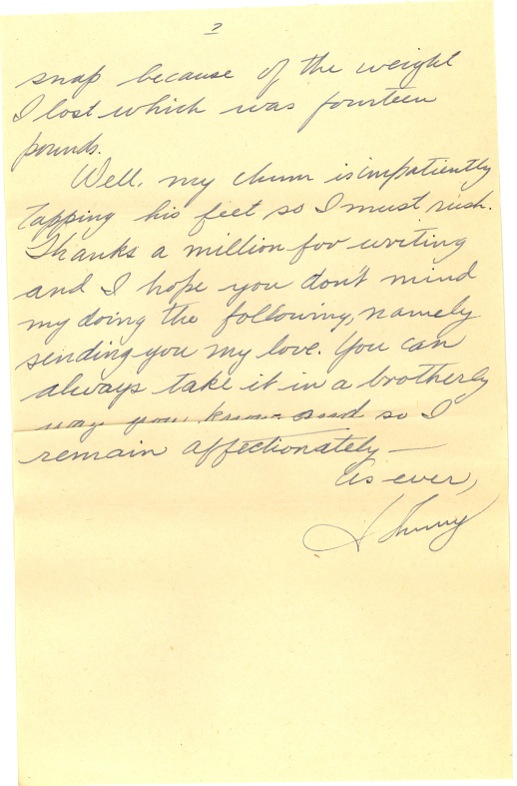 2
snap because of the weight
I lost which was fourteen
pounds.
Well, my chum is impatiently
tapping his feet so I must rush.
Thanks a million for writing
and I hope you don't mind
my doing the following, namely
sending you my love. You can
always take it in a brotherly
way you know and so I
remain affectionately —
As ever,